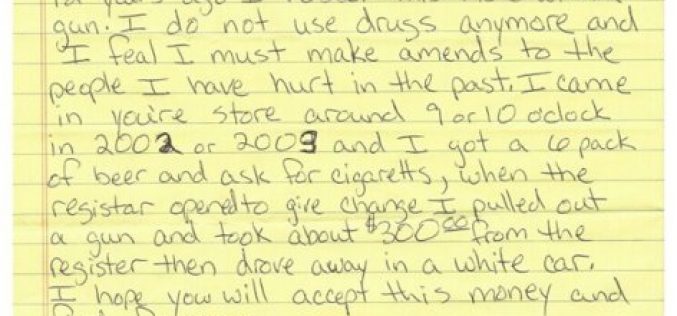 gun. I do not use drugs anymore and
I feal I must make amends to the
people I have hurt in the past. I came
in you're store around 9 or 10 o'clock
in 2002 or 2003 and I got a 6 pack
of beer and ask for cigaretts, when the
registar opened to give change I pulled out
a gun and took about $300.00 from the
register then drove away in a white car.
I hope you will accept this money and